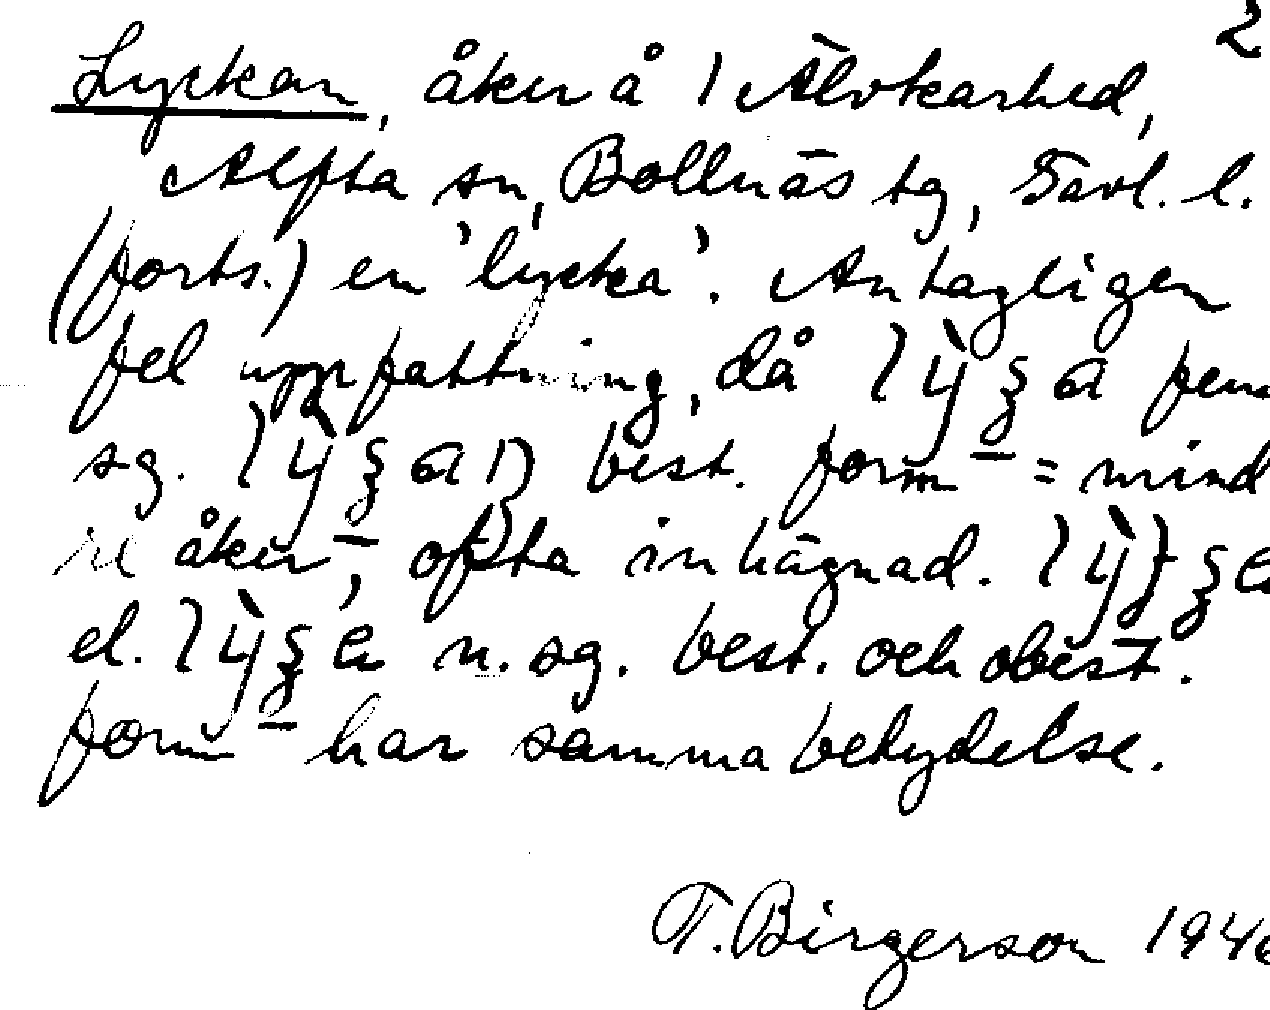 2
Lyckan, åker å 1 Älvkarhed,
Alfta sn, Bollnäs tg, Gävl. l.
(forts.) en 'lycka'. Antagligen
fel uppfattning, då lỳʒa fem
sg. lỳʒaŋ best. form = mind
re åker, ofta inhägnad.
el. n. sg. best. och obest.
form har samma betydelse.
T. Birgerson 1946